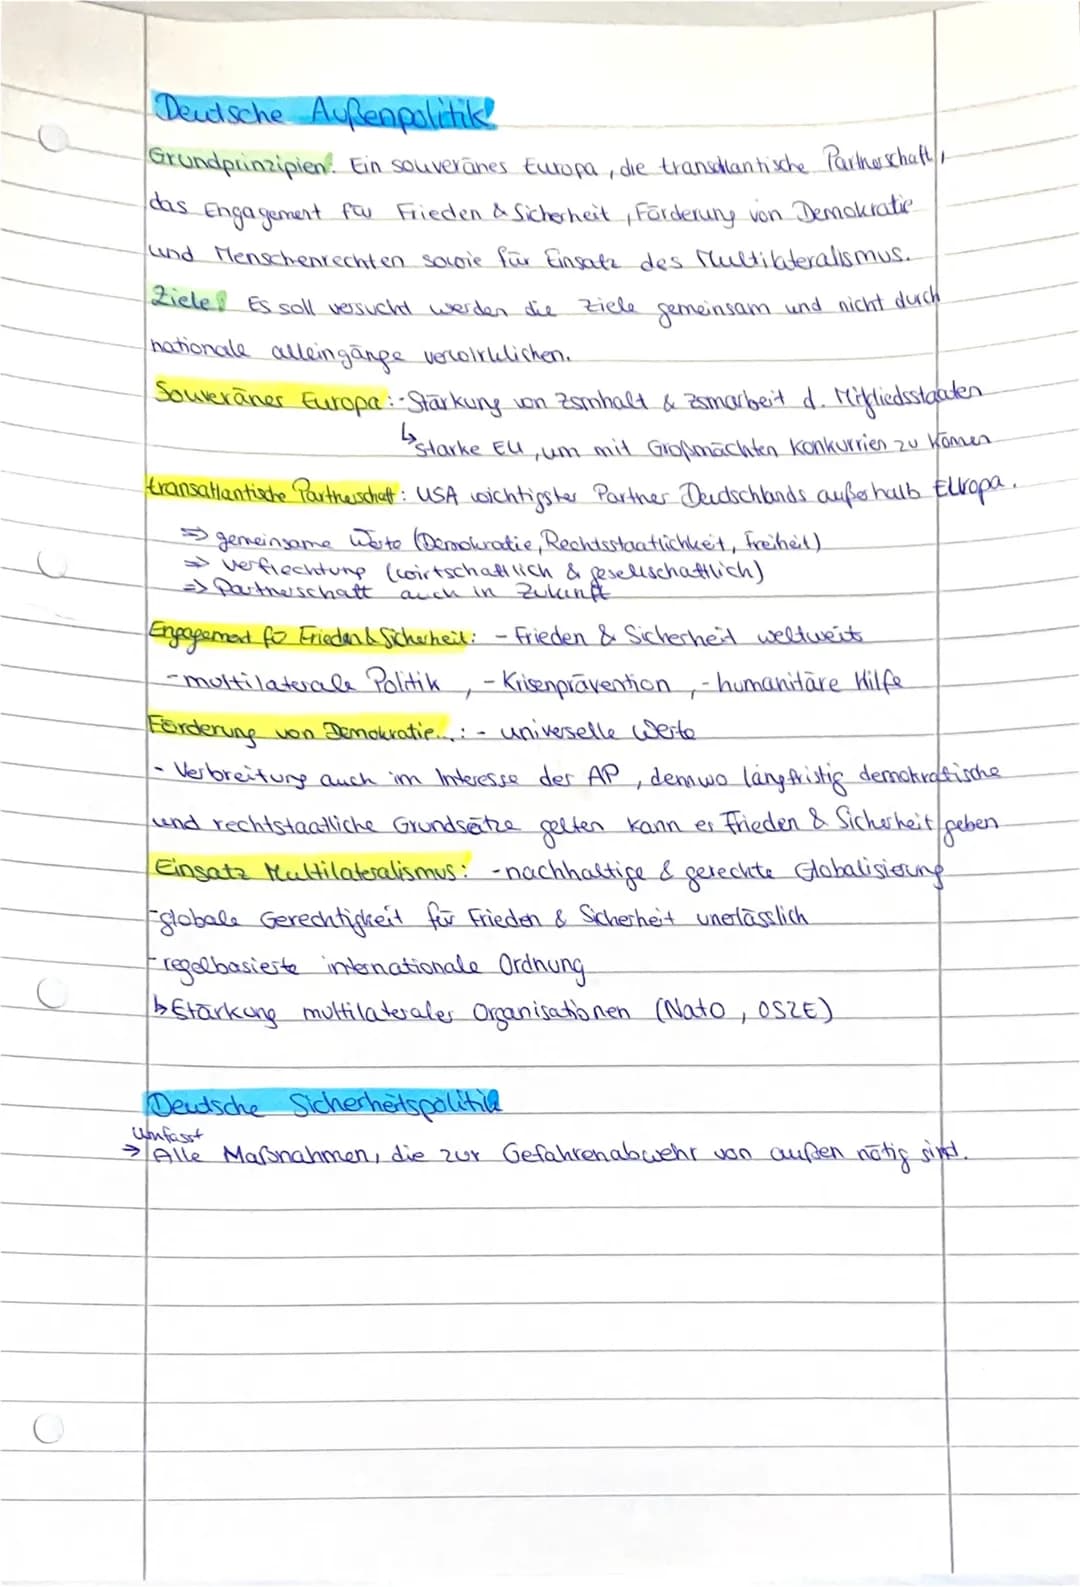 Deutsche Außenpolitik
Grundprinzipien: Ein souveränes Europa, die transatlantische Partnerschaft,
das Engagement für Frieden & Sicherheit, Förderung von Demokratie
und Menschenrechten sowie für Einsatz des Multilateralismus.
Ziele: Es soll versucht werden die Ziele gemeinsam und nicht durch
nationale alleingänge verwirklichen.
Souveränes Europa: - Stärkung von Zsmhalt & Zsmarbeit d. Mitgliedsstaaten
↳ starke EU, um mit Großmächten konkurrien zu können
transatlantische Partnerschaft: USA wichtigster Partner Deutschlands außerhalb Europa.
⇒ gemeinsame Werte (Demokratie, Rechtsstaatlichkeit, Freiheit)
⇒ Verflechtung (wirtschaftlich & gesellschaftlich)
⇒ Partnerschaft auch in Zukunft
Engagement für Frieden & Sicherheit: - Frieden & Sicherheit weltweit
- multilaterale Politik, - Krisenprävention, - humanitäre Hilfe
Förderung von Demokratie...: - universelle Werte
- Verbreitung auch im Interesse der AP, denn wo langfristig demokratische
und rechtstaatliche Grundsätze gelten kann es Frieden & Sicherheit geben
Einsatz Multilateralismus: - nachhaltige & gerechte Globalisierung
- globale Gerechtigkeit für Frieden & Sicherheit unerlässlich
- regelbasierte internationale Ordnung
↳ Stärkung multilateraler Organisationen (Nato, OSZE)
Deutsche Sicherheitspolitik
Umfasst
→ Alle Maßnahmen, die zur Gefahrenabwehr von außen nötig sind.